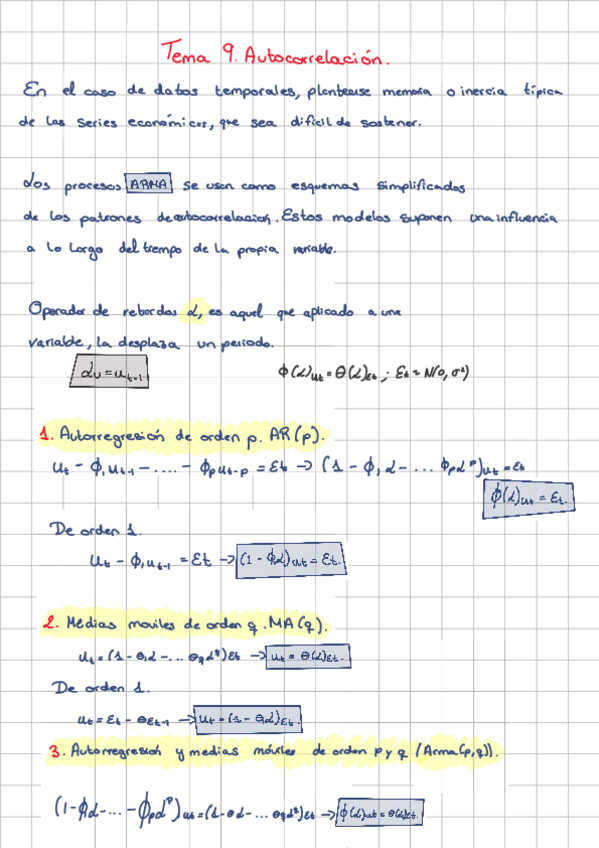 Tema 9. Autocorrelación.
En el caso de datos temporales, plantearse memoria o inercia típica
de las series económicas, que sea difícil de sostener.
Los procesos ARMA se usan como esquemas simplificados
de los patrones de autocorrelación. Estos modelos suponen una influencia
a lo largo del tiempo de la propia variable.
Operador de retardos L, es aquel que aplicado a una
variable, la desplaza un periodo.
Lu = u_{t-1}
ϕ(L)u_t = Θ(L)ε_t ; ε_t ~ N(0, σ²)
1. Autorregresión de orden p. AR(p).
u_t - ϕ₁u_{t-1} - .... - ϕ_p u_{t-p} = ε_t → (1 - ϕ₁L - ... ϕ_pL^p)u_t = ε_t
ϕ(L)u_t = ε_t.
De orden 1.
u_t - ϕ₁u_{t-1} = ε_t → (1 - ϕ₁L)u_t = ε_t.
2. Medias moviles de orden q. MA(q).
u_t = (1 - θ₁L - ... θ_qL^q)ε_t → u_t = θ(L)ε_t.
De orden 1.
u_t = ε_t - θε_{t-1} → u_t = (1 - θ₁L)ε_t.
3. Autorregresión y medias móviles de orden p y q (Arma(p,q)).
(1 - ϕ₁L - ... - ϕ_pL^p)u_t = (1 - θL - ... θ_qL^q)ε_t → ϕ(L)u_t = θ(L)ε_t.